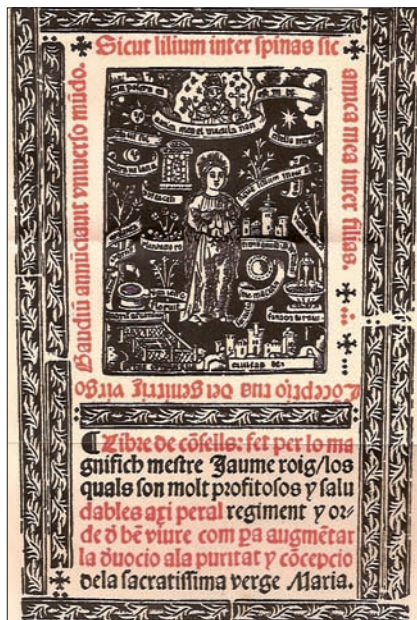 Sicut lilium inter spinas sic
amica mea inter filias.
Cōceptio tua dei genitrix virgo
Gaudiū annūciauit vniuerso mūdo.
Libre de cōsells: fet per lo ma
gnifich mestre Jaume roig/los
quals son molt profitosos y salu
dables axi peral regiment y or-
de d̄ bē viure com ꝑa augmētar
la d̄uocio ala puritat y cōcepcio
dela sacratissima verge Maria.